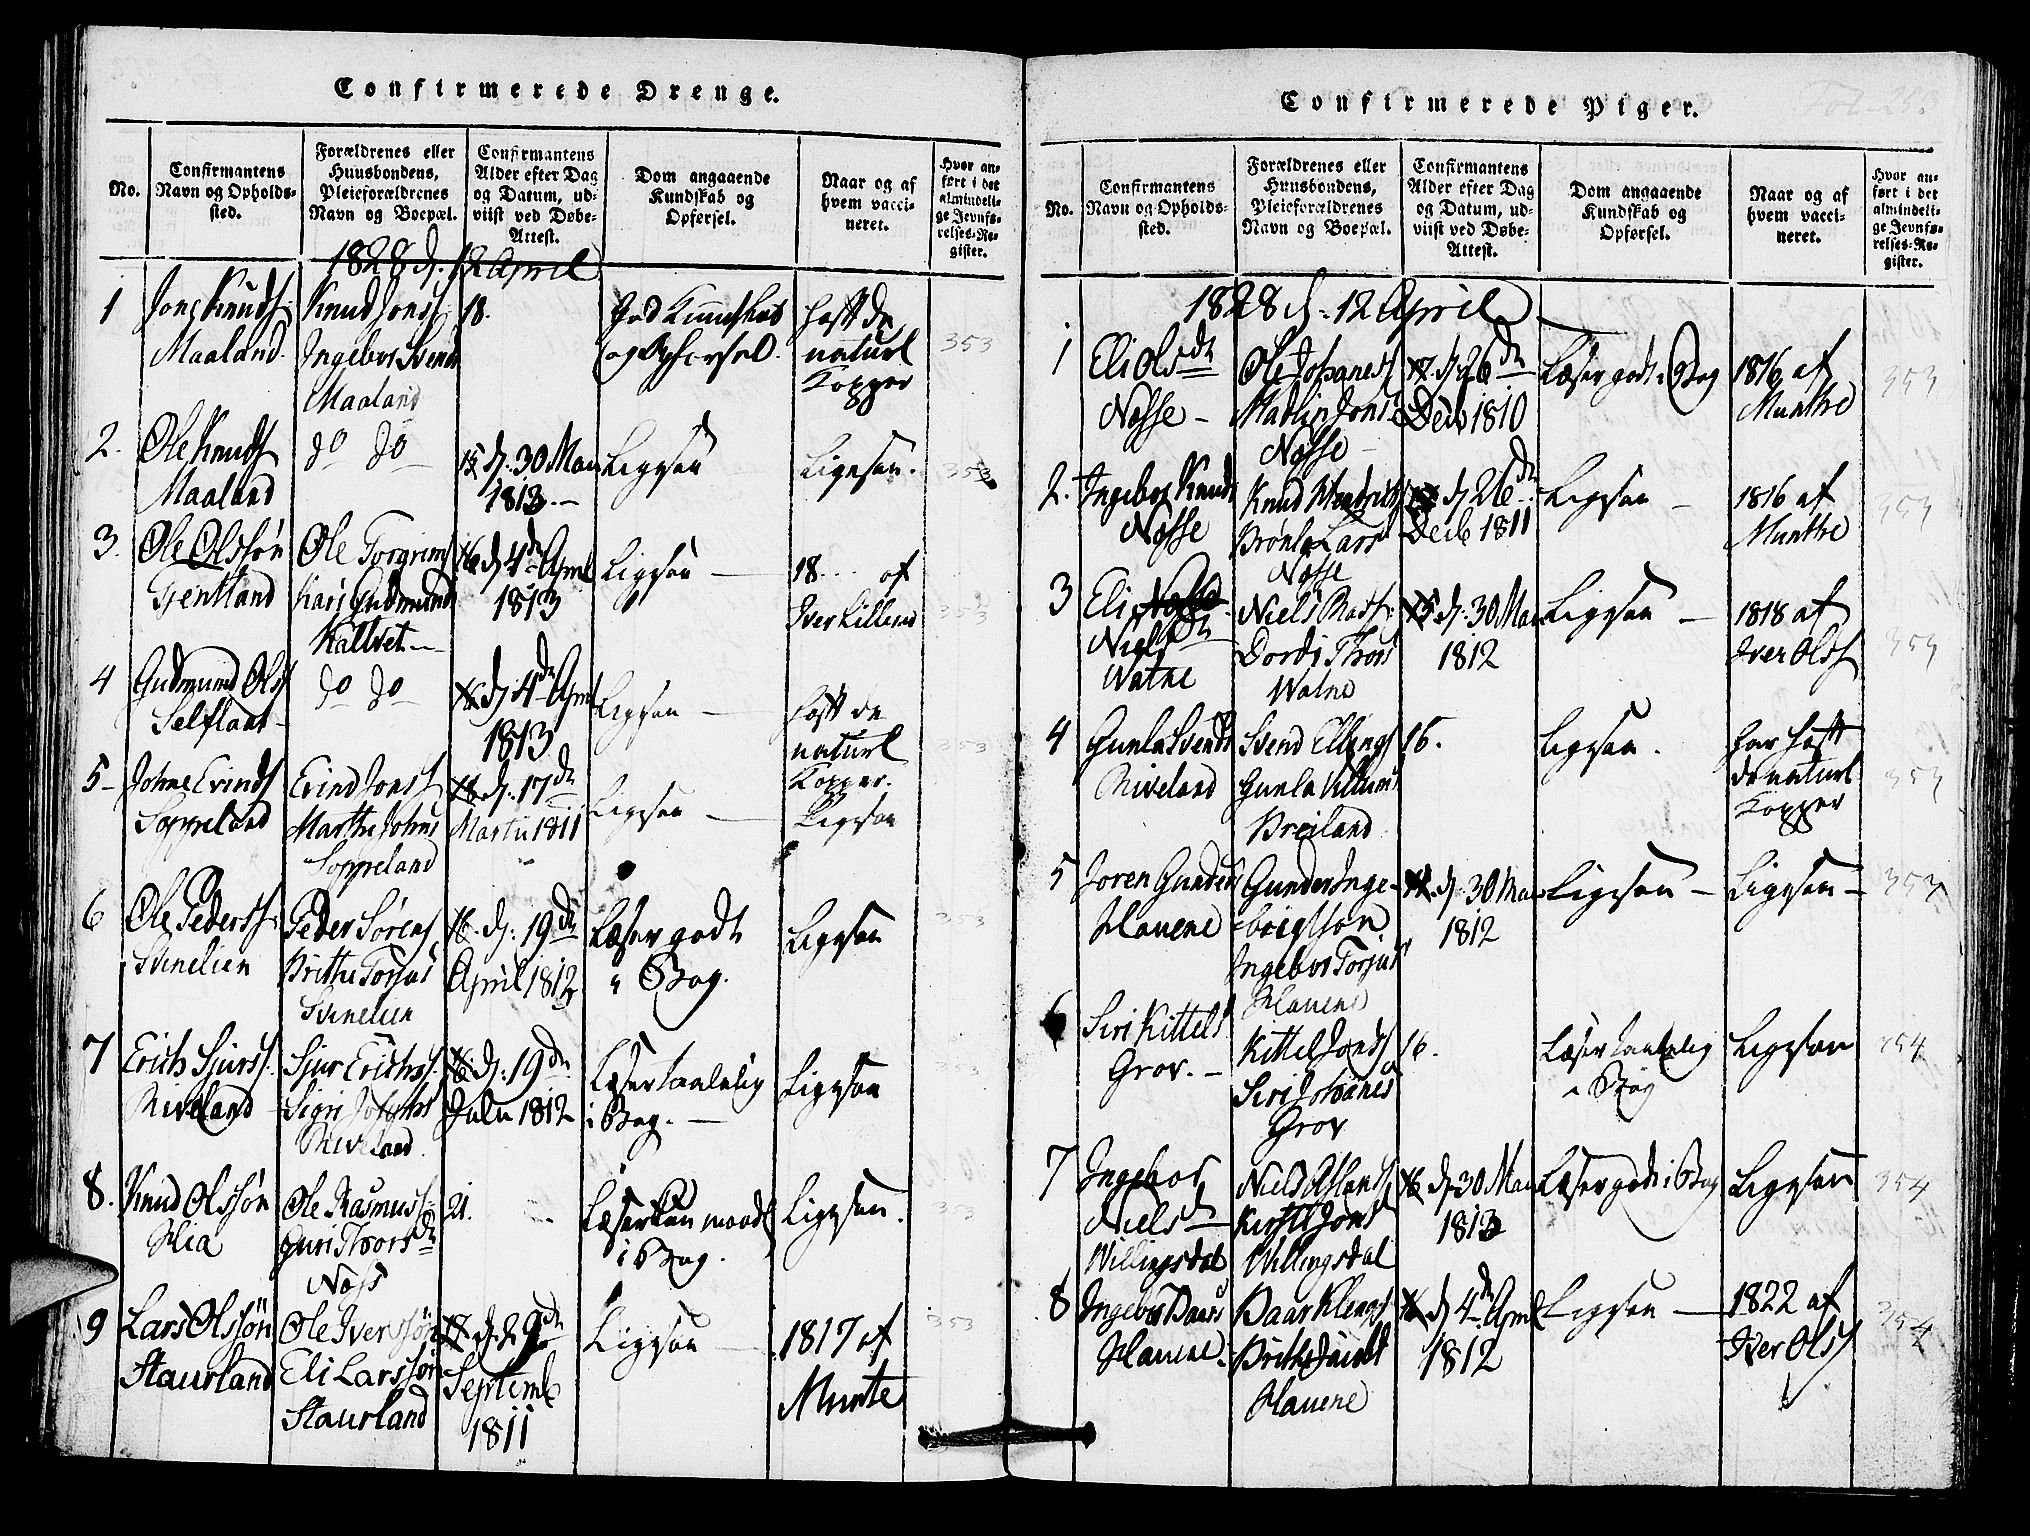 Confirmerede Drenge.
No.
Confirmantens
Navn og Opholds-
sted.
Forældrenes eller
Huusbondens,
Pleieforældrenes
Navn og Boepæl.
Confirmantens
Alder efter Dag
og Datum, ud-
viist ved Døbe-
Attest.
Dom angaaende
Kundskab og
Opførsel.
Naar og af
hvem vacci-
neret.
Hvor an-
ført i det
almindeli-
ge Jevnfø-
relses-Re-
gister.
1828 d. 12 April
1
Maaland.
Knud Jons
Maaland
18.
God Kundskab
og Opførsel.
haft de
naturl
Kopper
353
2.
Ole Knuds
Maaland
do do
15 d. 30 Mai
1813.
Ligesaa
Ligesaa.
353
3.
Ole Olssøn
Ole Torgrims
Kari Gudmunds
Kaltvet
16 d. 4de April
1813
Ligesaa
18 . . . af
Iver
353
4
Gudmund Ols
Selfland
do do
16 d. 4de April
1813
Ligesaa
haft de
naturl
Kopper.
353
5
Johne Evinds
Soppeland
Evind Jons
Marthe Johns
Soppeland
18 d. 17de
Martii 1811
Ligesaa
Ligesaa
6
Ole Peders
Svinelien
Peder Sørens
Svinelien
16. d. 19de
April 1812
Læser godt
i Bog.
Ligesaa
353
7
Erich Sjurs
Riveland
Sjur Erichs
Riveland
16 d. 19de
Julii 1812
Læser taalelig
i Bog.
Ligesaa
353
8.
Knud Olssøn
Ole Rasmus
Guri Thorsdt
21.
Læser kun maadl
i Bog.
Ligesaa.
353
9
Lars Olssøn
Staurland
Ole Iverssøn
Eli Larssøn
Staurland
d. 29de
Septemb
1811
Ligesaa
1817 af
Munte
353
Confirmerede Piger.
No.
Confirmantens
Navn og Opholds-
sted.
Forældrenes eller
Huusbondens,
Pleieforældrenes
Navn og Boepæl.
Confirmantens
Alder efter Dag
og Datum, ud-
viist ved Døbe-
Attest.
Dom angaaende
Kundskab og
Opførsel.
Naar og af
hvem vacci-
neret.
Hvor an-
ført i det
almindeli-
ge Jevnfø-
relses-Re-
gister.
1828 d. 12 April
1
Eli Olsdt
Nosse
Ole Johanes
Madlin Jons
Nosse
17. d. 26de
Decb 1810
Læser godt i Bog
1816 af
Munthe
353
2.
Ingebor Knuds
Nosse
Knud
Lars
Nosse
d. 26de
Decb 1811
Ligesaa
1816 af
Munthe
353
3
Eli
Nielsdt
Watne
Niels
Dordi Thors
Watne
15 d. 30 Mai
1812
Ligesaa
1818 af
Iver Ols
353
4
Gunla Svends
Riveland
Svend Ellings
Gunla
16.
Ligesaa.
har haft
de naturl
Kopper
353
5
Joren Gunders
Hauene
Gunder Inge-
brigtsøn
Ingebor Torjus
Hauene
d. 30 Mai
1812
Ligesaa
Ligesaa
353
6
Siri Kittels
Grov.
Kittel Jonds
Siri Johanes
Grov
16.
Læser taalelig
i Bog
Ligesaa
354
7
Ingebor
Nielsdt
Willingsdal
Niels Aslands
Jons
Willingsdal
d. 30 Mai
1813
Læser godt i Bog
Ligesaa
354
8
Ingebor Baars
Hauene.
Baar Klengs
Hauene
d. 4de April
1812
Ligesaa
1822 af
Iver Ols
354